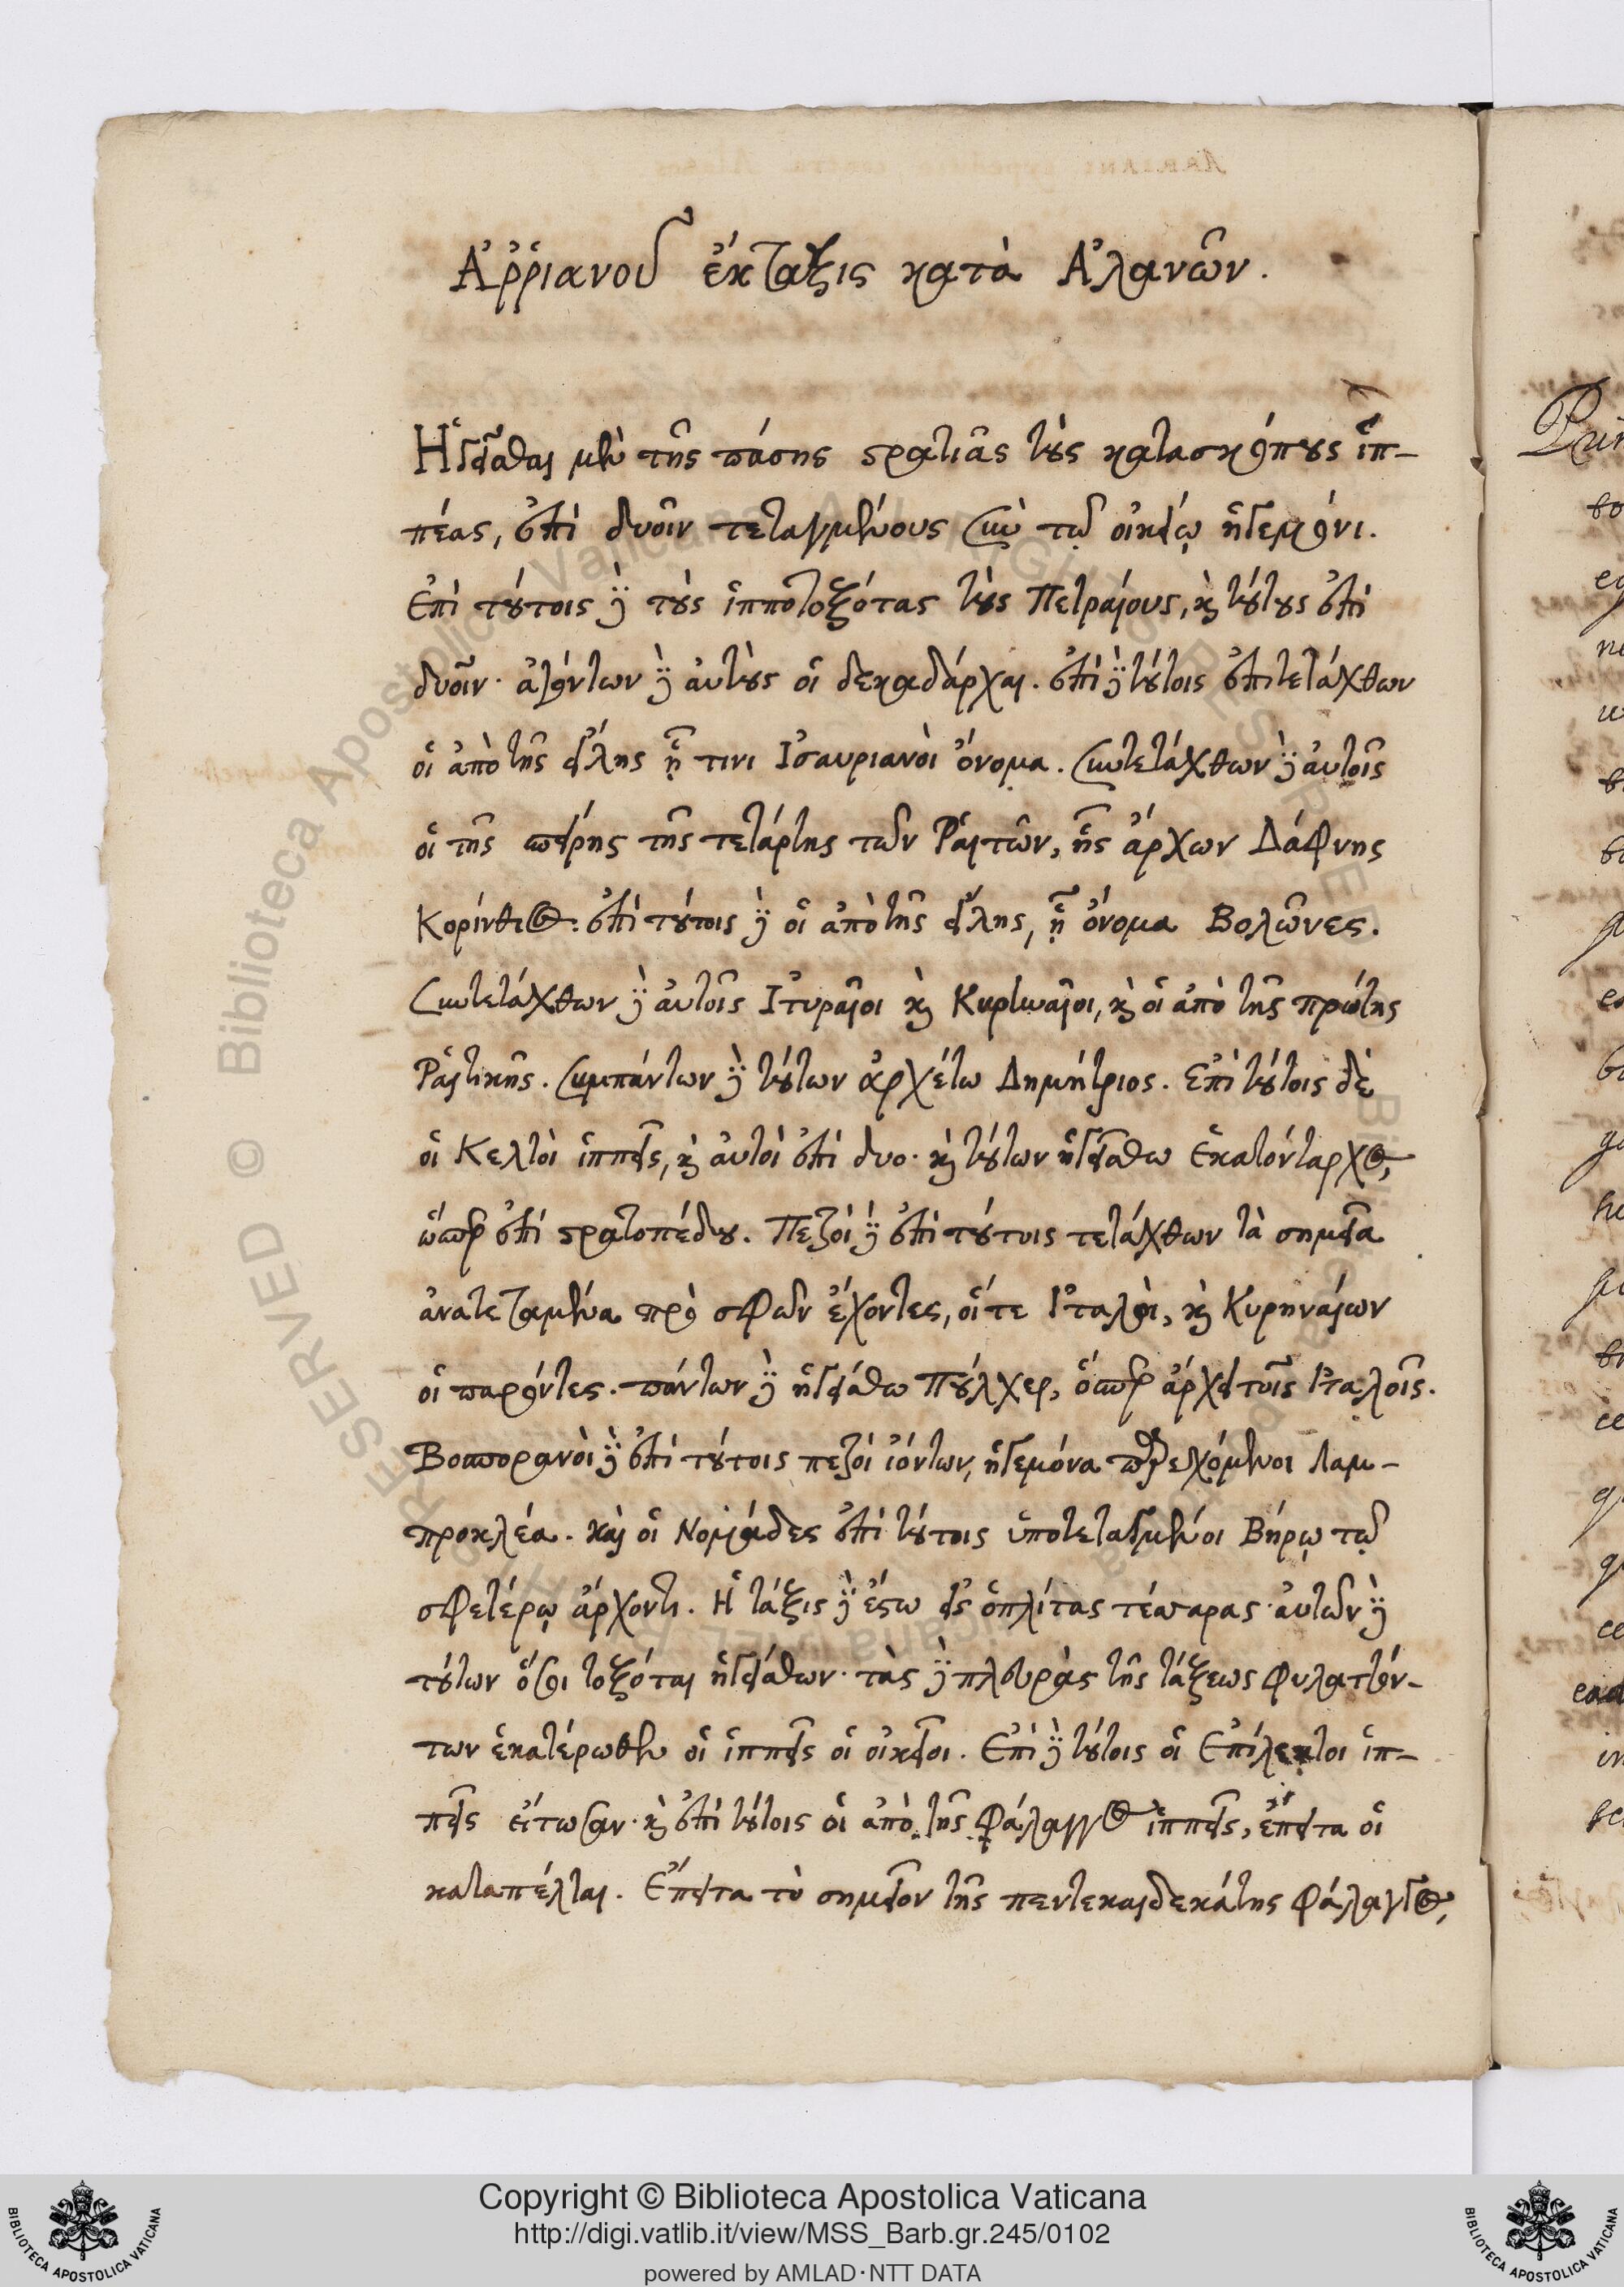 Ἀῤῥιανοῦ ἔκταξις κατὰ Ἀλανῶν.
Ἡγεῖσθαι μὲν τῆς πάσης στρατιᾶς τοὺς κατασκόπους ἱπ-
πέας, ἐπὶ δυοῖν τεταγμένους σὺν τῷ οἰκείῳ ἡγεμόνι.
Ἐπὶ τούτοις δὲ τοὺς ἱπποτοξότας τοὺς Πετραίους, καὶ τούτους ἐπὶ
δυοῖν· ἀγόντων δὲ αὐτοὺς οἱ δεκαδάρχαι. ἐπὶ δὲ τούτοις ἐπιτετάχθων
οἱ ἀπὸ τῆς εἴλης ᾗ τινι Ἰσαυριανοὶ ὄνομα. Συντετάχθων δὲ αὐτοῖς
οἱ τῆς σπείρης τῆς τετάρτης τῶν Ῥαιτῶν, ἧς ἄρχων Δάφνης
Κορίνθιος. ἐπὶ τούτοις δὲ οἱ ἀπὸ τῆς εἴλης, ᾗ ὄνομα Βολῶνες.
Συντετάχθων δὲ αὐτοῖς Ἰτυραῖοι καὶ Κυρηναῖοι, καὶ οἱ ἀπὸ τῆς πρώτης
Ῥαιτικῆς. Συμπάντων δὲ τούτων ἀρχέτω Δημήτριος. Ἐπὶ τούτοις δὲ
οἱ Κελτοὶ ἱππεῖς, καὶ αὐτοὶ ἐπὶ δυο. καὶ τούτων ἡγείσθω Ἑκατόντάρχος,
ὥσπερ ἐπὶ στρατοπέδου. Πεζοὶ δὲ ἐπὶ τούτοις τετάχθων τὰ σημεῖα
ἀνατεταμένα πρὸ σφῶν ἔχοντες, οἵ τε Ἰταλοὶ, καὶ Κυρηναίων
οἱ παρόντες. πάντων δὲ ἡγείσθω Πούλχερ, ὅσπερ ἄρχει τοῖς Ἰταλοῖς.
Βοσπορανοὶ δὲ ἐπὶ τούτοις πεζοὶ ἰόντων, ἡγεμόνα παρεχόμενοι Λαμ-
προκλέα. καὶ οἱ Νομάδες ἐπὶ τούτοις ὑποτεταγμένοι Βήρῳ τῷ
σφετέρῳ ἄρχοντι. Ἡ τάξις δὲ ἔστω εἰς ὁπλίτας τέσσαρας. αὐτῶν δὲ
τούτων ὅσοι τοξόται ἡγείσθων. τὰς δὲ πλευρὰς τῆς τάξεως φυλαττόν-
των ἑκατέρωθεν οἱ ἱππεῖς οἱ οἰκεῖοι. Ἐπὶ δὲ τούτοις οἱ Ἐπίλεκτοι ἱπ-
πεῖς εἴτωσαν. καὶ ἐπὶ τούτοις οἱ ἀπὸ τῆς φάλαγγος ἱππεῖς, ἔπειτα οἱ
καταπέλται. Ἔπειτα τὸ σημεῖον τῆς πεντεκαιδεκάτης φάλαγγος,
Copyright © Biblioteca Apostolica Vaticana
http://digi.vatlib.it/view/MSS_Barb.gr.245/0102
powered by AMLAD·NTT DATA